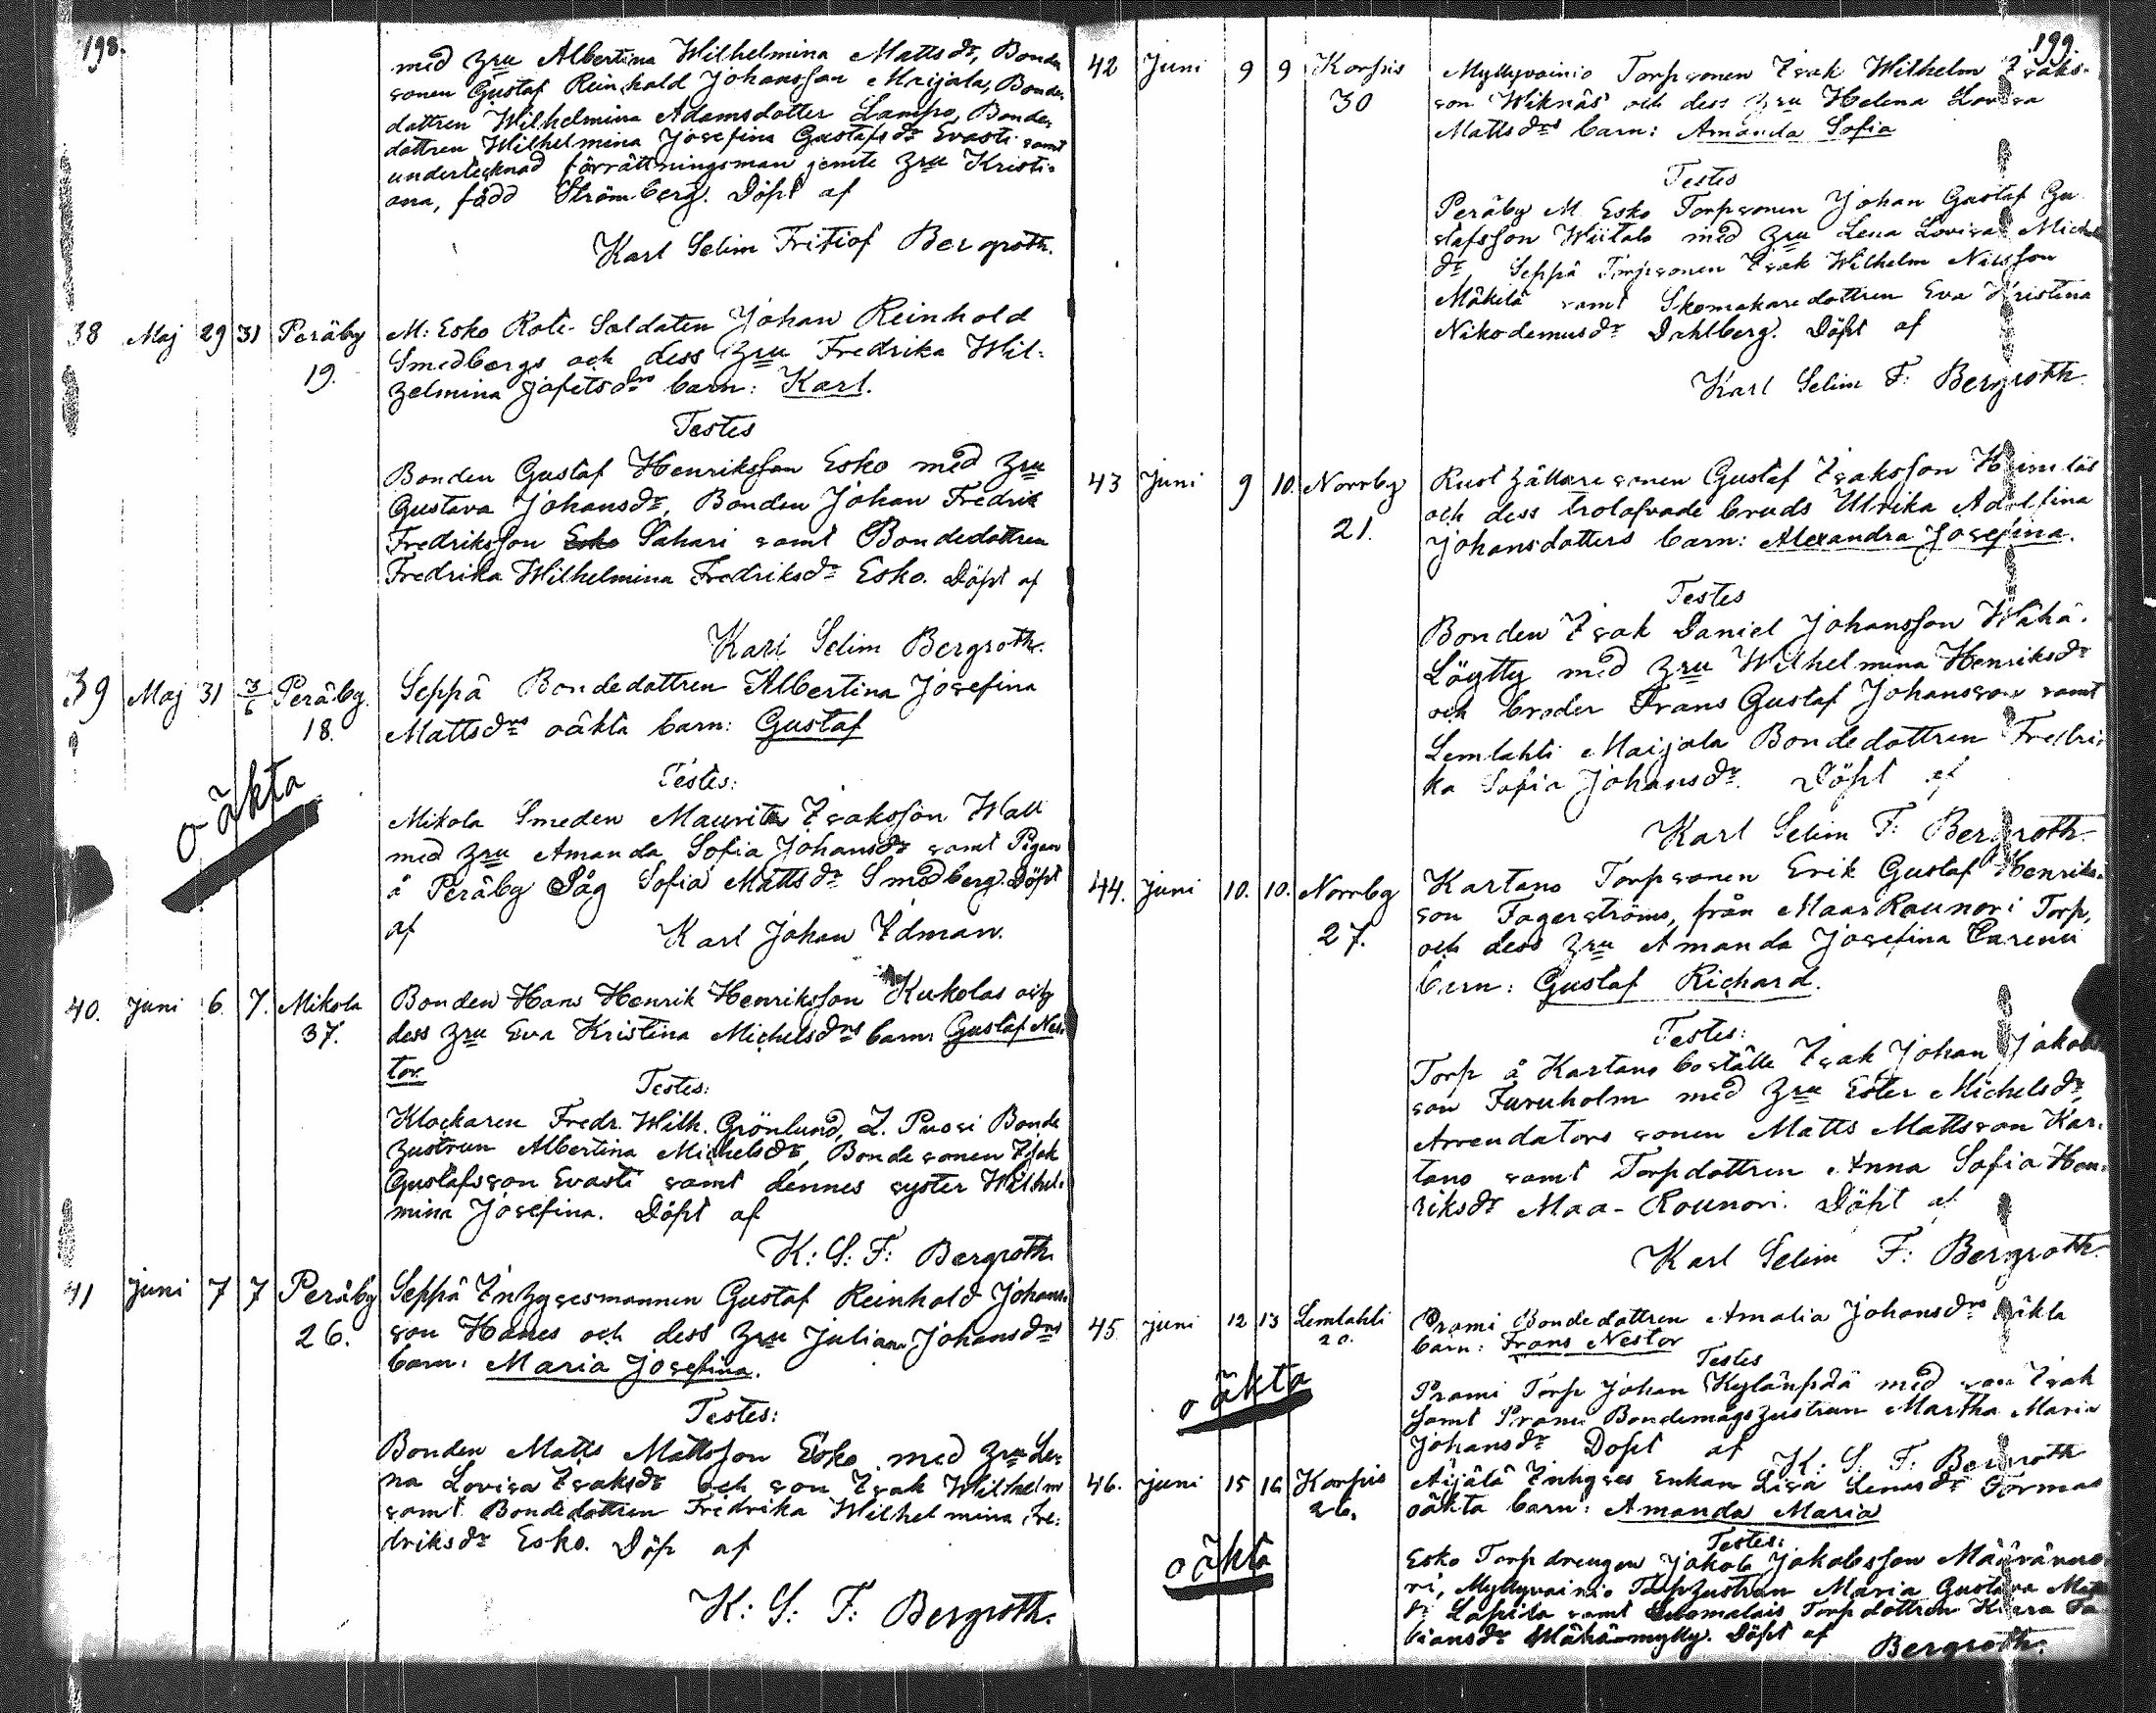 198.
med Hru Albertina Wilhelmina Mattsdr, Bonde
sonen Gustaf Reinhold Johansson Maijala, Bonde
dottren Wilhelmina Adamsdotter Lampo, Bonde
dottren Wilhelmina Josefina Gustafsdr Evasti samt
undertecknad förrättningsman jemte Hru Kristi-
ana, född Strömberg. Döpt af
Karl Selim Fritiof Bergroth.
38 Maj 29 31 Peräby
19.
M: Esko Rote-Soldaten Johan Reinhold
Smedbergs och dess Hru Fredrika Wil-
helmina Jafetsdrs barn: Karl.
Testes
Bonden Gustaf Henriksson Esko med Hru
Gustava Johansdr, Bonden Johan Fredrik
Fredriksson Esko Sahari samt Bondedottren
Fredrika Wilhelmina Fredriksdr Esko. Döpt af
Karl Selim Bergroth.
39 Maj 31 3/6 Peräby.
18.
oäkta
Seppä Bondedottren Albertina Josefina
Mattsdrs oäkta barn: Gustaf
Testes:
Mikola Smeden Mauritz Isaksson Wall
med Hru Amanda Sofia Johansdr samt Pigan
å Peräby Såg Sofia Mattsdr Smedberg. Döpt
af Karl Johan Idman.
40. Juni 6. 7. Mikola
37.
Bonden Hans Henrik Henriksson Kukolas och
dess Hru Eva Kristina Michelsdrs barn: Gustaf Nes-
tor.
Testes:
Klockaren Fredr. Wilh. Grönlund, L. Puosi Bonde
hustrun Albertina Michelsdr, Bondesonen Isak
Gustafsson Evasti samt dennes syster Wilhel-
mina Josefina. Döpt af
K: S: F: Bergroth.
41 Juni 7 7 Peräby
26.
Seppä Inhysesmannen Gustaf Reinhold Johans-
son Hanes och dess Hru Juliana Johansdrs
barn: Maria Josefina.
Testes:
Bonden Matts Mattsson Esko med Hru Le-
na Lovisa Isaksdr och son Isak Wilhelm
samt Bondedottren Fredrika Wilhelmina Fre-
driksdr Esko. Döp af
K: S: F: Bergroth.
199.
42 Juni 9 9 Korpis
30
Myllyvainio Torpsonen Isak Wilhelm Isaks-
son Wiknäs och dess Hru Helena Lovisa
Mattsdrs barn: Amanda Sofia
Testes
Peräby M. Esko Torpsonen Johan Gustaf Gu
stafsson Wiitala med Hru Lena Lovisa Michels
dr, Seppä Torpsonen Isak Wilhelm Nilsson
Mäkelä samt Skomakaredottren Eva Kristina
Nikodemusdr Dahlberg. Döpt af
Karl Selim F: Bergroth.
43 Juni 9 10. Norrby
21.
Rusthållaresonen Gustaf Isaksson
och dess trolofvade bruds Ulrika Adolfina
Johansdotters barn: Alexandra Josefina.
Testes
Bonden Isak Daniel Johansson Wähä-
Löytty med Hru Wilhelmina Henriksdr
och broder Frans Gustaf Johansson samt
Lemlahti Maijala Bondedottren Fredri-
ka Sofia Johansdr. Döpt af
Karl Selim F: Bergroth.
44. Juni 10. 10. Norrby
27.
Kartano Torpsonen Erik Gustaf Henriks-
son Fagerströms, från Maas Raunori Torp,
och dess Hru Amanda Josefina Carenii
barn: Gustaf Richard.
Testes:
Torp å Kartano boställe Isak Johan Jakobs
son Furuholm med Hru Ester Michelsdr,
Arrendators sonen Matts Mattsson Kar-
tano samt Torpdottren Anna Sofia Hen-
riksdr Maa-Rounori. Döpt af
Karl Selim F: Bergroth.
45. Juni 12 13 Lemlahti
20.
oäkta
Prami Bondedottren Amalia Johansdrs oäkta
barn: Frans Nestor
Testes
Prami Torp Johan Kylänpää med son Isak
samt Prami Bondemågshustrun Martha Maria
Johansdr Döpt af K: S: F: Bergroth
46. Juni 15 16 Korpis
26.
oäkta
Äijälä Inhyses Enkan Lisa Lenasdr Formas
oäkta barn: Amanda Maria
Testes:
Esko Torpdrengen Jakob Jakobsson
ri, Myllyvainio Torphustrun Maria Gustava
dr Lapila samt Torpdottren
biansdr Wähämylly. Döpt af Bergroth.